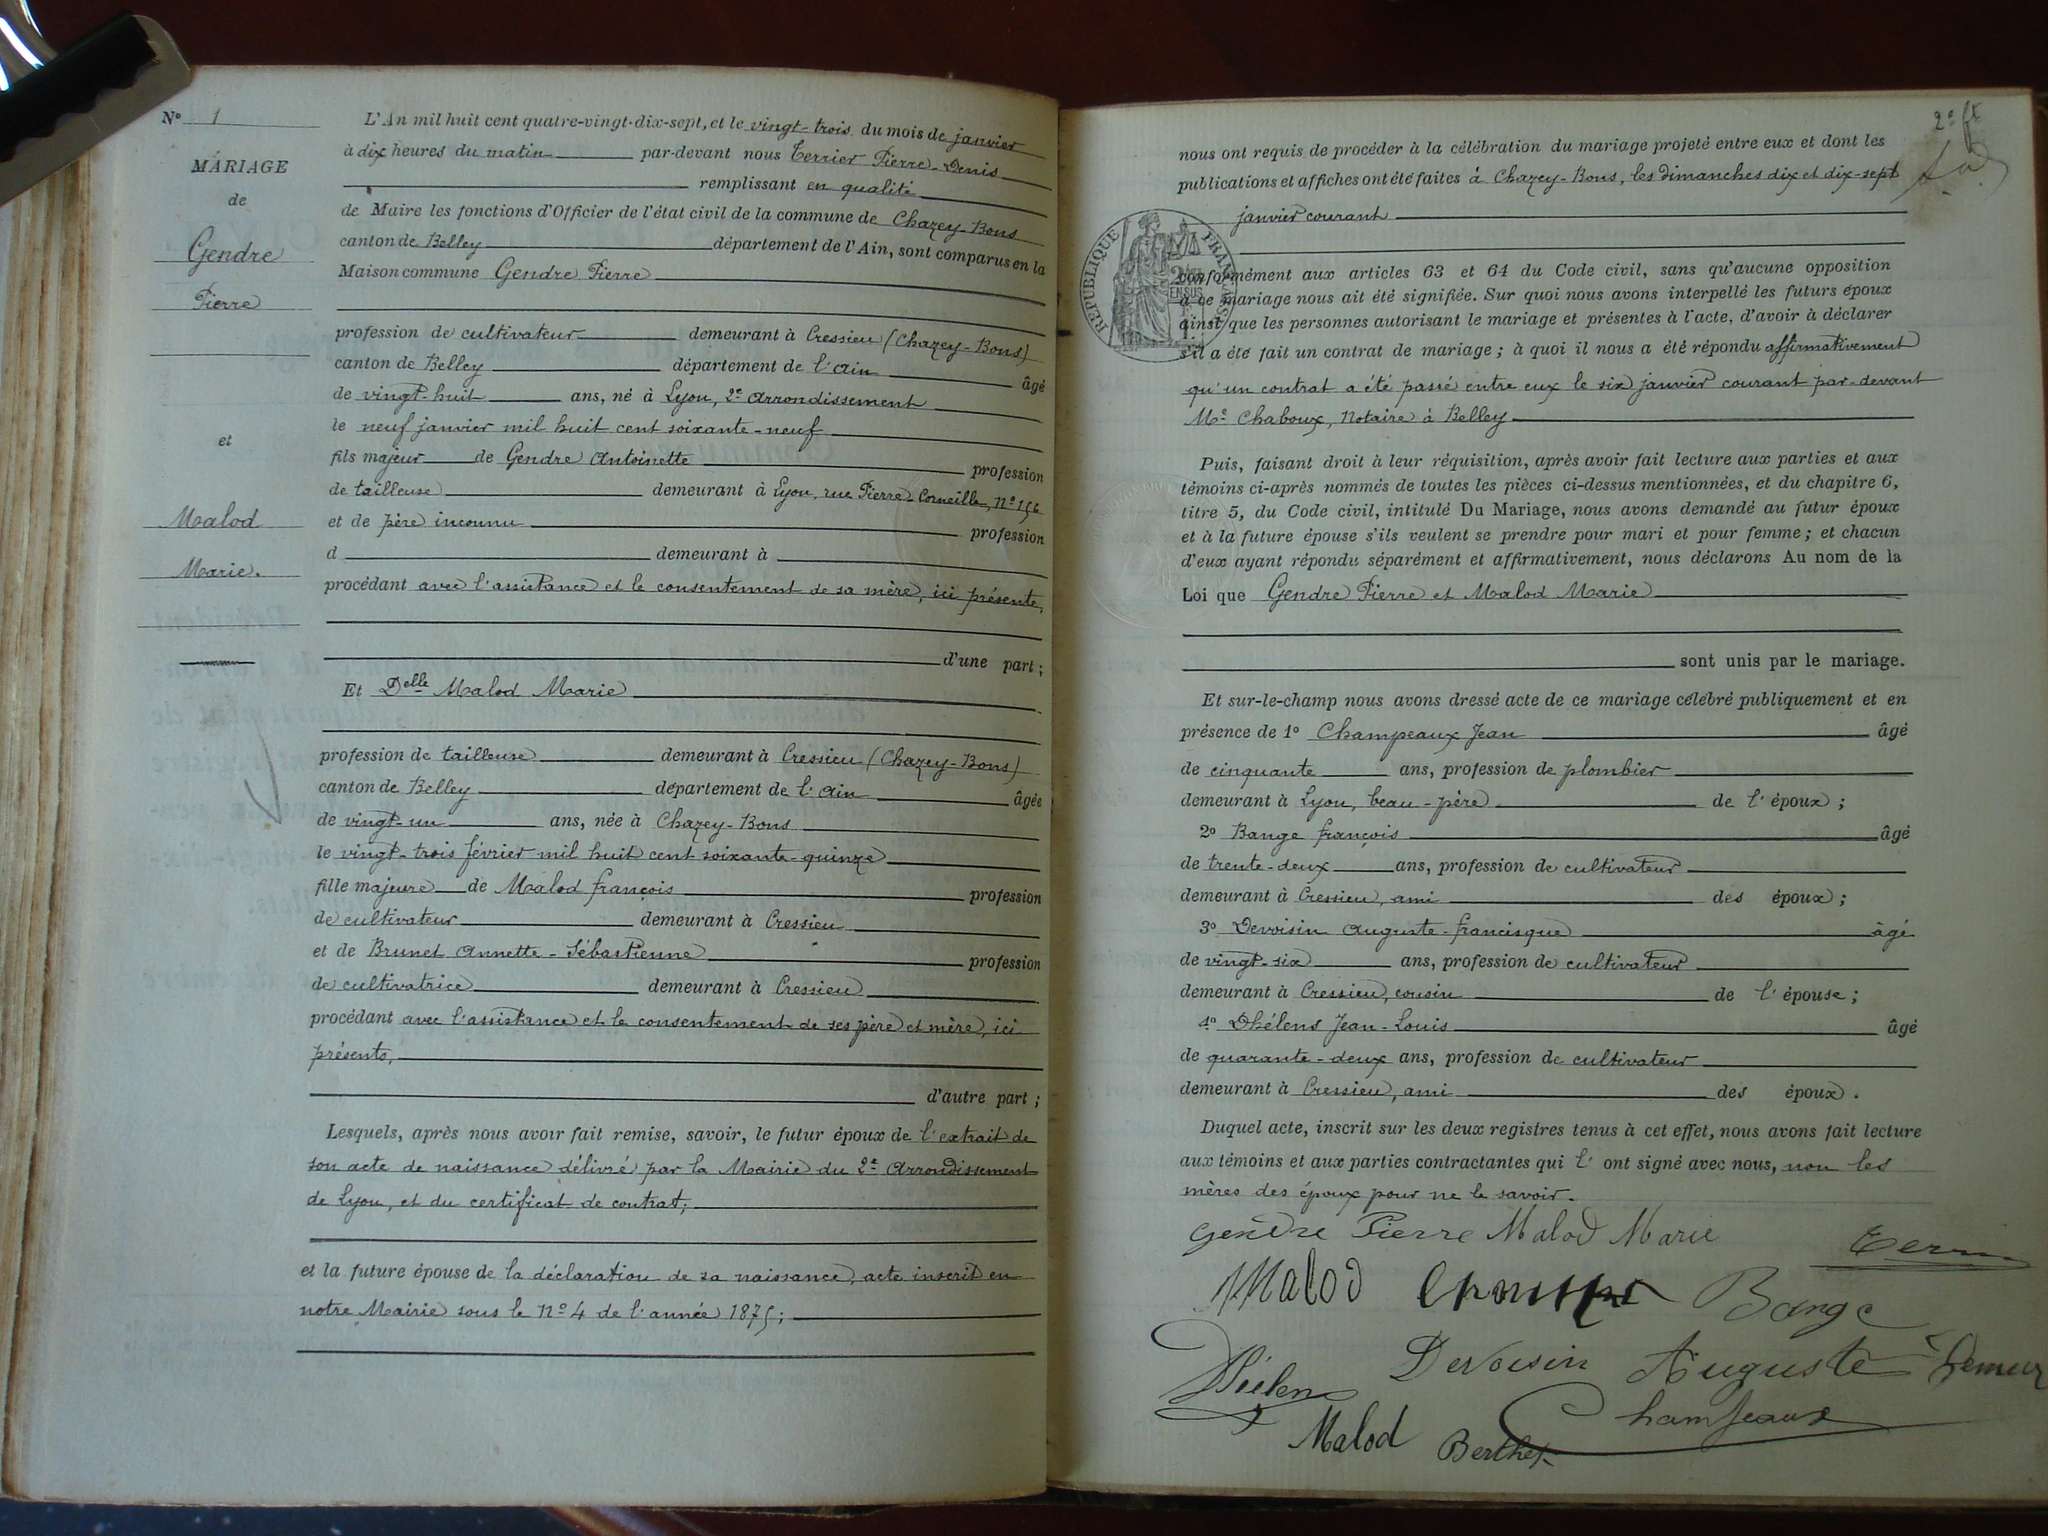 N° 1
MARIAGE
de
Gendre
Pierre
et
Malod
Marie.
L'An mil huit cent quatre-vingt-dix-sept, et le vingt-trois du mois de janvier
à dix heures du matin par-devant nous Terrier Pierre-Denis
remplissant en qualité
de Maire les fonctions d'Officier de l'état civil de la commune de Chazey-Bons
canton de Belley département de l'Ain, sont comparus en la
Maison commune Gendre Pierre
profession de cultivateur demeurant à Cressieu (Chazey-Bons)
canton de Belley département de l'Ain âgé
de vingt-huit ans, né à Lyon, 2e Arrondissement
le neuf janvier mil huit cent soixante-neuf
fils majeur de Gendre Antoinette profession
de tailleuse demeurant à Lyon, rue Pierre-Corneille, N°
et de père inconnu profession
d demeurant à
procédant avec l'assistance et le consentement de sa mère, ici présente,
d'une part ;
Et Delle Malod Marie
profession de tailleuse demeurant à Cressieu (Chazey-Bons)
canton de Belley département de l'Ain âgée
de vingt-un ans, née à Chazey-Bons
le vingt-trois février mil huit cent soixante-quinze
fille majeure de Malod françois profession
de cultivateur demeurant à Cressieu
et de Brunet Annette-Sébastienne profession
de cultivatrice demeurant à Cressieu
procédant avec l'assistance et le consentement de ses père et mère, ici
présents,
d'autre part ;
Lesquels, après nous avoir fait remise, savoir, le futur époux de l'extrait de
son acte de naissance délivré par la Mairie du 2e Arrondissement
de Lyon, et du certificat de contrat;
et la future épouse de la déclaration de sa naissance, acte inscrit en
notre Mairie sous le N° 4 de l'année 1875;
2e ft
nous ont requis de procéder à la célébration du mariage projeté entre eux et dont les
publications et affiches ont été faites à Chazey-Bons, les dimanches dix et dix-sept
janvier courant
REPUBLIQUE FRANÇAISE
conformément aux articles 63 et 64 du Code civil, sans qu'aucune opposition
à ce mariage nous ait été signifiée. Sur quoi nous avons interpellé les futurs époux
ainsi que les personnes autorisant le mariage et présentes à l'acte, d'avoir à déclarer
s'il a été fait un contrat de mariage ; à quoi il nous a été répondu affirmativement
qu'un contrat a été passé entre eux le six janvier courant par-devant
Me Chaboux, Notaire à Belley
Puis, faisant droit à leur réquisition, après avoir fait lecture aux parties et aux
témoins ci-après nommés de toutes les pièces ci-dessus mentionnées, et du chapitre 6,
titre 5, du Code civil, intitulé Du Mariage, nous avons demandé au futur époux
et à la future épouse s'ils veulent se prendre pour mari et pour femme ; et chacun
d'eux ayant répondu séparément et affirmativement, nous déclarons Au nom de la
Loi que Gendre Pierre et Malod Marie
sont unis par le mariage.
Et sur-le-champ nous avons dressé acte de ce mariage célébré publiquement et en
présence de 1° Champeaux Jean âgé
de cinquante ans, profession de plombier
demeurant à Lyon, beau-père de l'époux ;
2° Bange françois âgé
de trente-deux ans, profession de cultivateur
demeurant à Cressieu, ami des époux ;
3° Devoisin Auguste-francisque âgé
de vingt-six ans, profession de cultivateur
demeurant à Cressieu, cousin de l'épouse ;
4° Dhélens Jean-Louis âgé
de quarante-deux ans, profession de cultivateur
demeurant à Cressieu, ami des époux.
Duquel acte, inscrit sur les deux registres tenus à cet effet, nous avons fait lecture
aux témoins et aux parties contractantes qui l'ont signé avec nous, non les
mères des époux pour ne le savoir.
Gendre Pierre Malod Marie
Malod Bange
Devoisin Auguste
Champeaux
Malod Berthet